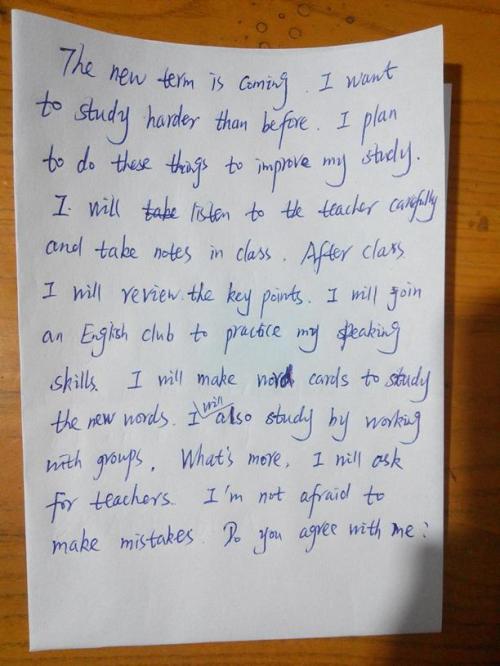 The new term is coming. I want
to study harder than before. I plan
to do these things to improve my study.
I will take listen to the teacher carefully
and take notes in class. After class
I will review the key points. I will join
an English club to practice my speaking
skills. I will make word cards to study
the new words. I will also study by working
with groups. What's more, I will ask
for teachers. I'm not afraid to
make mistakes. Do you agree with me?